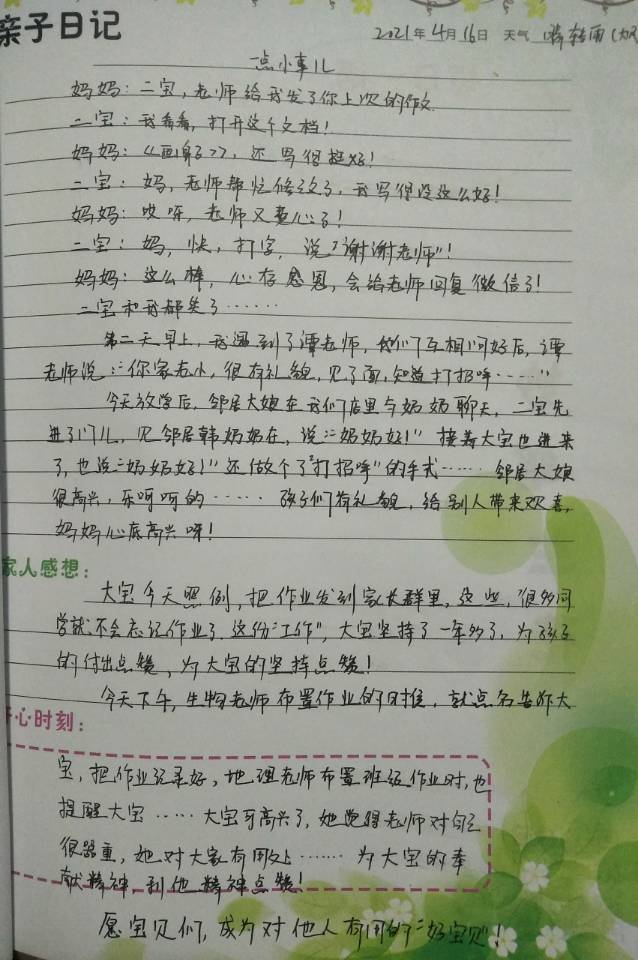 亲子日记
2021年4月16日 天气 晴转雨
一点小事儿
妈妈：二宝，老师给我发了你上次的作文.
二宝：我看看，打开这个文档！
妈妈：《画鼻子》，还写得挺好！
二宝：妈，老师帮忙修改了，我写得没这么好！
妈妈：哎呀，老师又费心了！
二宝：妈，快，打字，说“谢谢老师”！
妈妈：这么棒，心存感恩，会给老师回复微信了！
二宝和我都笑了……
第二天早上，我遇到了谭老师，我们互相问好后，谭
老师说：“你家老小，很有礼貌，见了面，知道打招呼……”
今天放学后，邻居大娘在我们店里与奶奶聊天，二宝先
进了门儿，见邻居韩奶奶在，说：“奶奶好！”接着大宝也进来
了，也说：“奶奶好！”还做个了“打招呼”的手式……邻居大娘
很高兴，乐呵呵的……孩子们有礼貌，给别人带来欢喜，
妈妈心底高兴呀！
家人感想：
大宝今天照例，把作业发到家长群里，这些，很多同
学就不会忘记作业了.这份“工作”，大宝坚持了一年多了，为孩子
的付出点赞，为大宝的坚持点赞！
今天下午，生物老师布置作业的时候，就点名告诉大
开心时刻：
宝，把作业记录好，地理老师布置班级作业时，也
提醒大宝……大宝可高兴了，她觉得老师对自己
很器重，她对大家有用处……为大宝的奉
献精神，利他精神点赞！
愿宝贝们，成为对他人有用的“好宝贝”！